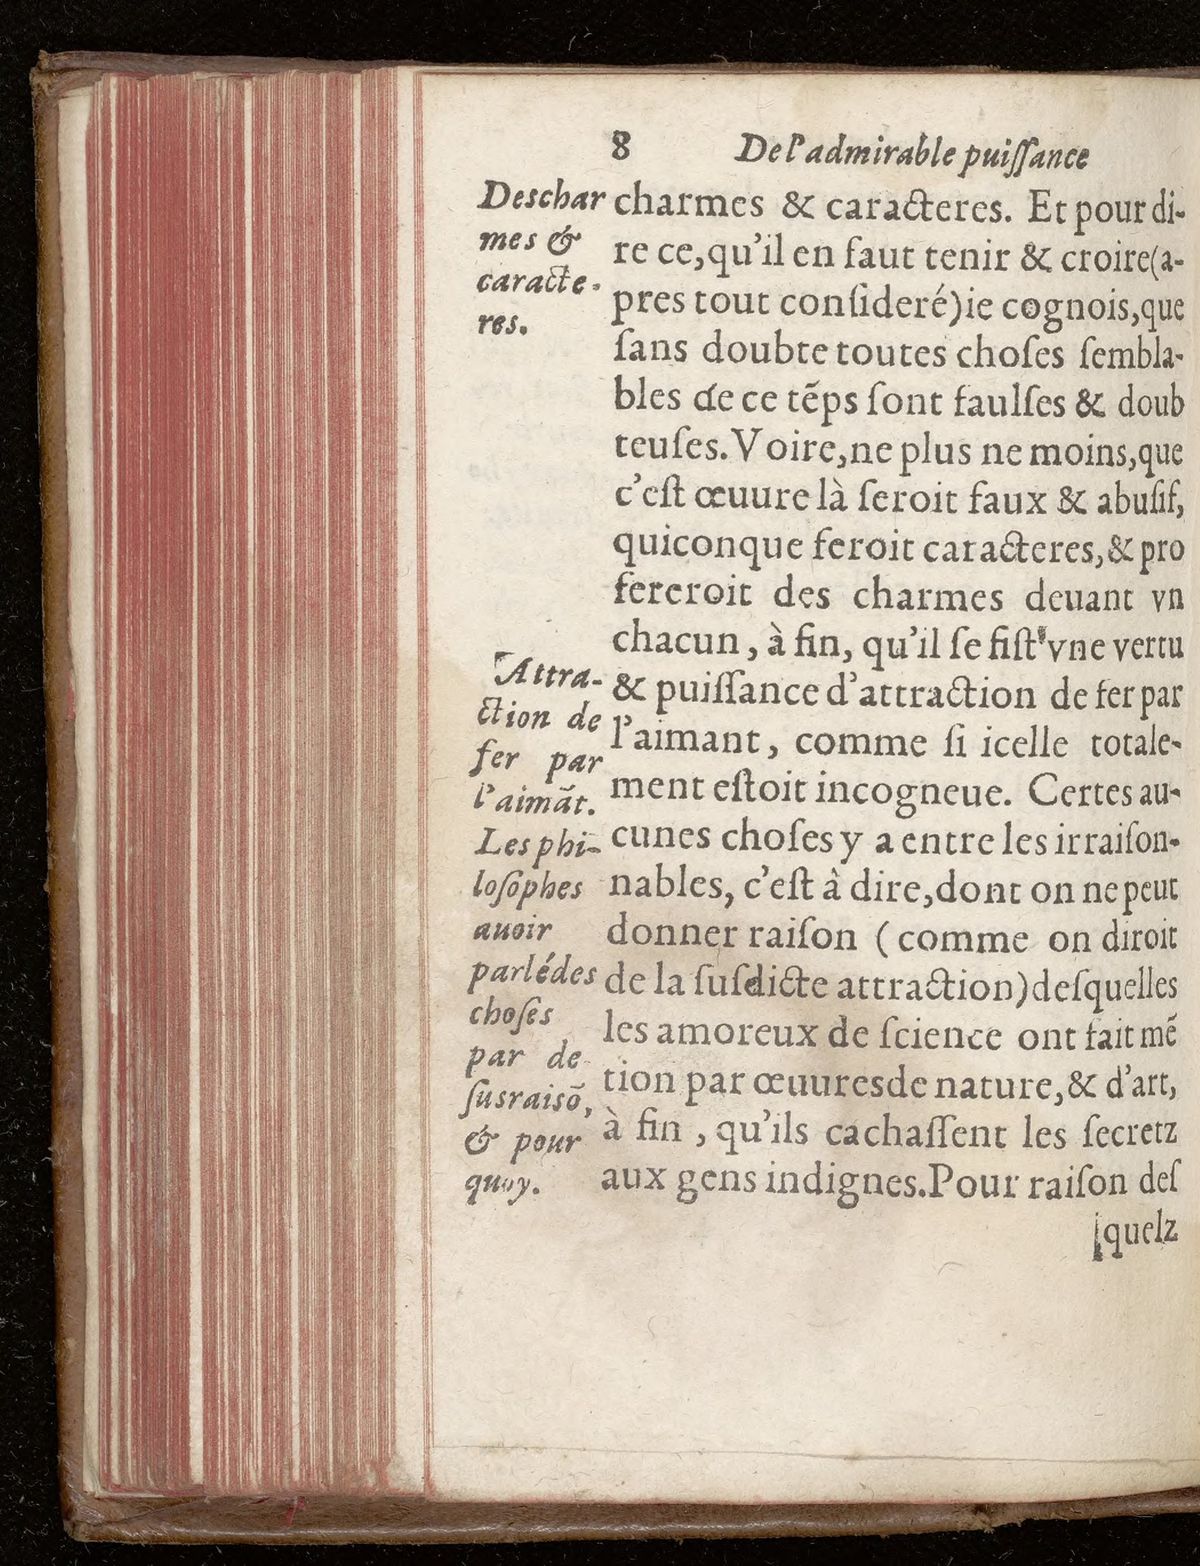 8 De l'admirable puiſſance
Des char
mes &
caracte-
res.
charmes & caracteres. Et pour di-
re ce, qu'il en faut tenir & croire (a-
pres tout conſideré) ie cognois, que
ſans doubte toutes choſes ſembla-
bles de ce tẽps ſont faulſes & doub
teuſes. Voire, ne plus ne moins, que
c'eſt œuure là ſeroit faux & abuſif,
quiconque feroit caracteres, & pro
fereroit des charmes deuant vn
chacun, à fin, qu'il ſe fiſt vne vertu
& puiſſance d'attraction de fer par
l'aimant, comme ſi icelle totale-
ment eſtoit incogneue. Certes au-
cunes choſes y a entre les irraiſon-
nables, c'eſt à dire, dont on ne peut
donner raiſon (comme on diroit
de la ſuſdicte attraction) deſquelles
les amoreux de ſcience ont fait mẽ
tion par œuures de nature, & d'art,
à fin, qu'ils cachaſſent les ſecretz
aux gens indignes. Pour raiſon deſ
quelz
Attra-
ction de
fer par
l'aimãt.
Les phi-
loſophes
auoir
parlé des
choſes
par de
ſus raiſõ,
& pour
quoy.